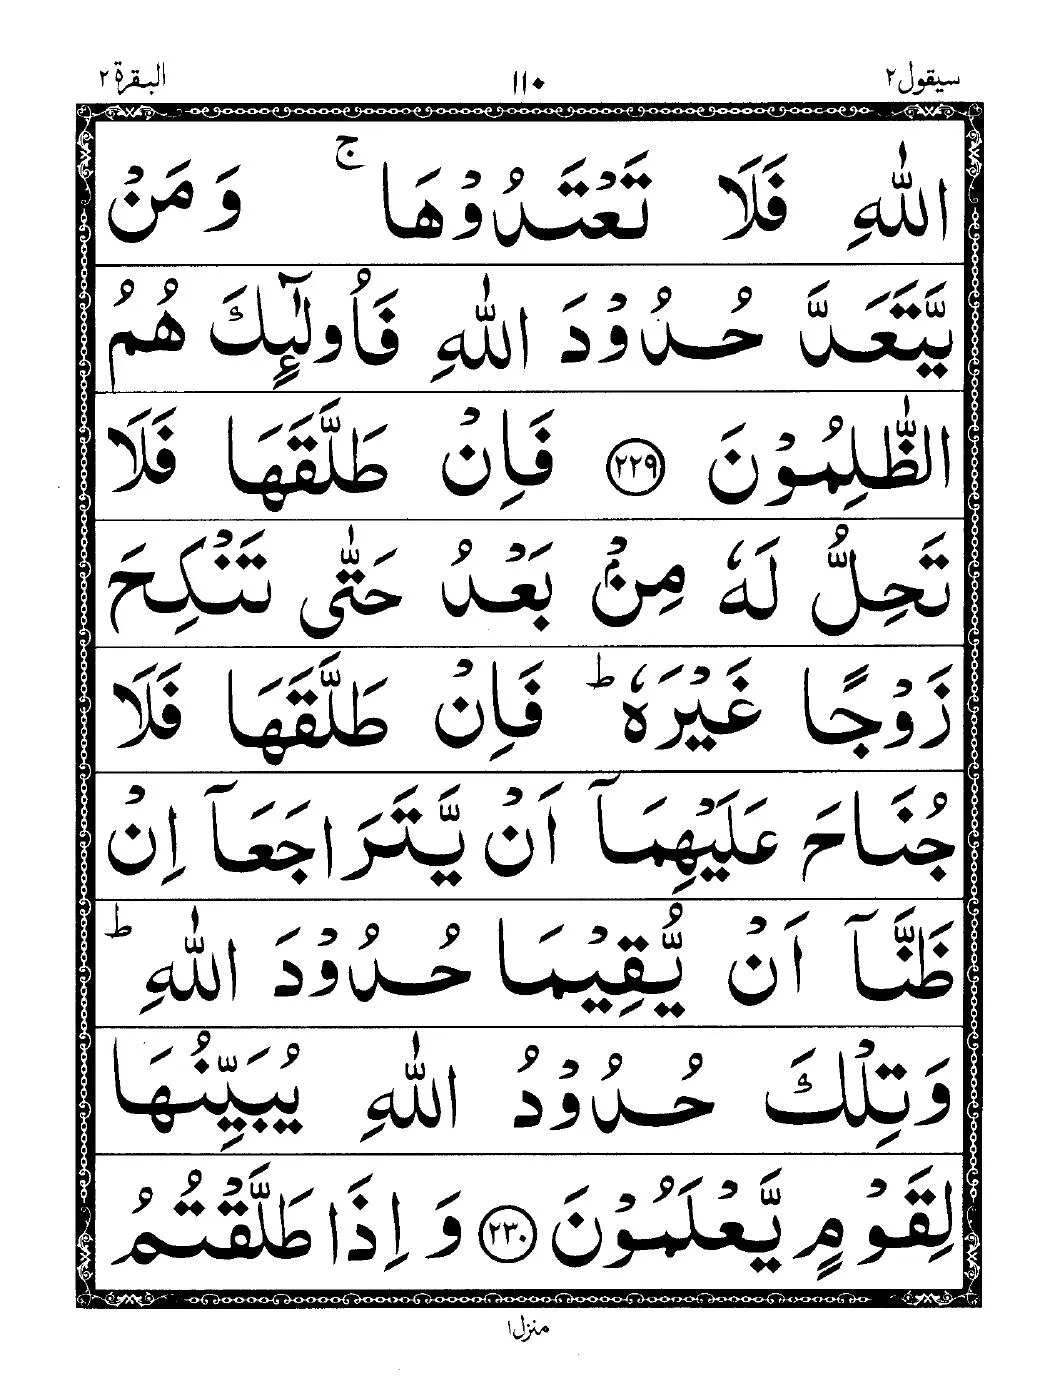 سيقول ٢ ١١٠ البقرة ٢
اللّٰهِ فَلَا تَعْتَدُوْهَا ۚ وَ مَنْ
يَّتَعَدَّ حُدُوْدَ اللّٰهِ فَاُولٰٓئِكَ هُمُ
الظّٰلِمُوْنَ ﴿٢٢٩﴾ فَاِنْ طَلَّقَهَا فَلَا
تَحِلُّ لَهٗ مِنْۢ بَعْدُ حَتّٰى تَنْكِحَ
زَوْجًا غَيْرَهٗ ؕ فَاِنْ طَلَّقَهَا فَلَا
جُنَاحَ عَلَيْهِمَاۤ اَنْ يَّتَرَاجَعَاۤ اِنْ
ظَنَّاۤ اَنْ يُّقِيْمَا حُدُوْدَ اللّٰهِ ؕ
وَتِلْكَ حُدُوْدُ اللّٰهِ يُبَيِّنُهَا
لِقَوْمٍ يَّعْلَمُوْنَ ﴿٢٣٠﴾ وَ اِذَا طَلَّقْتُمُ
منزل ١